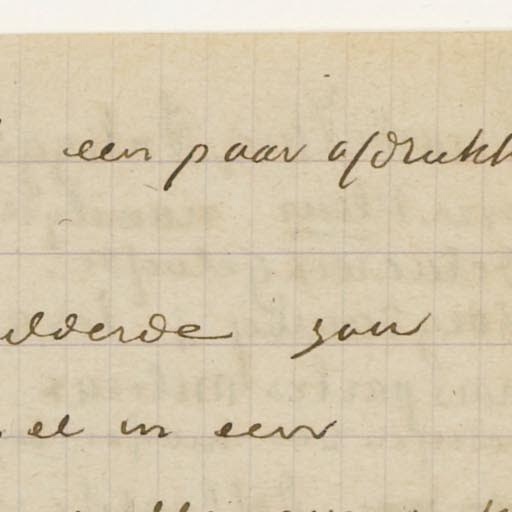 een paar afdrukk
ilderde zou
el in een